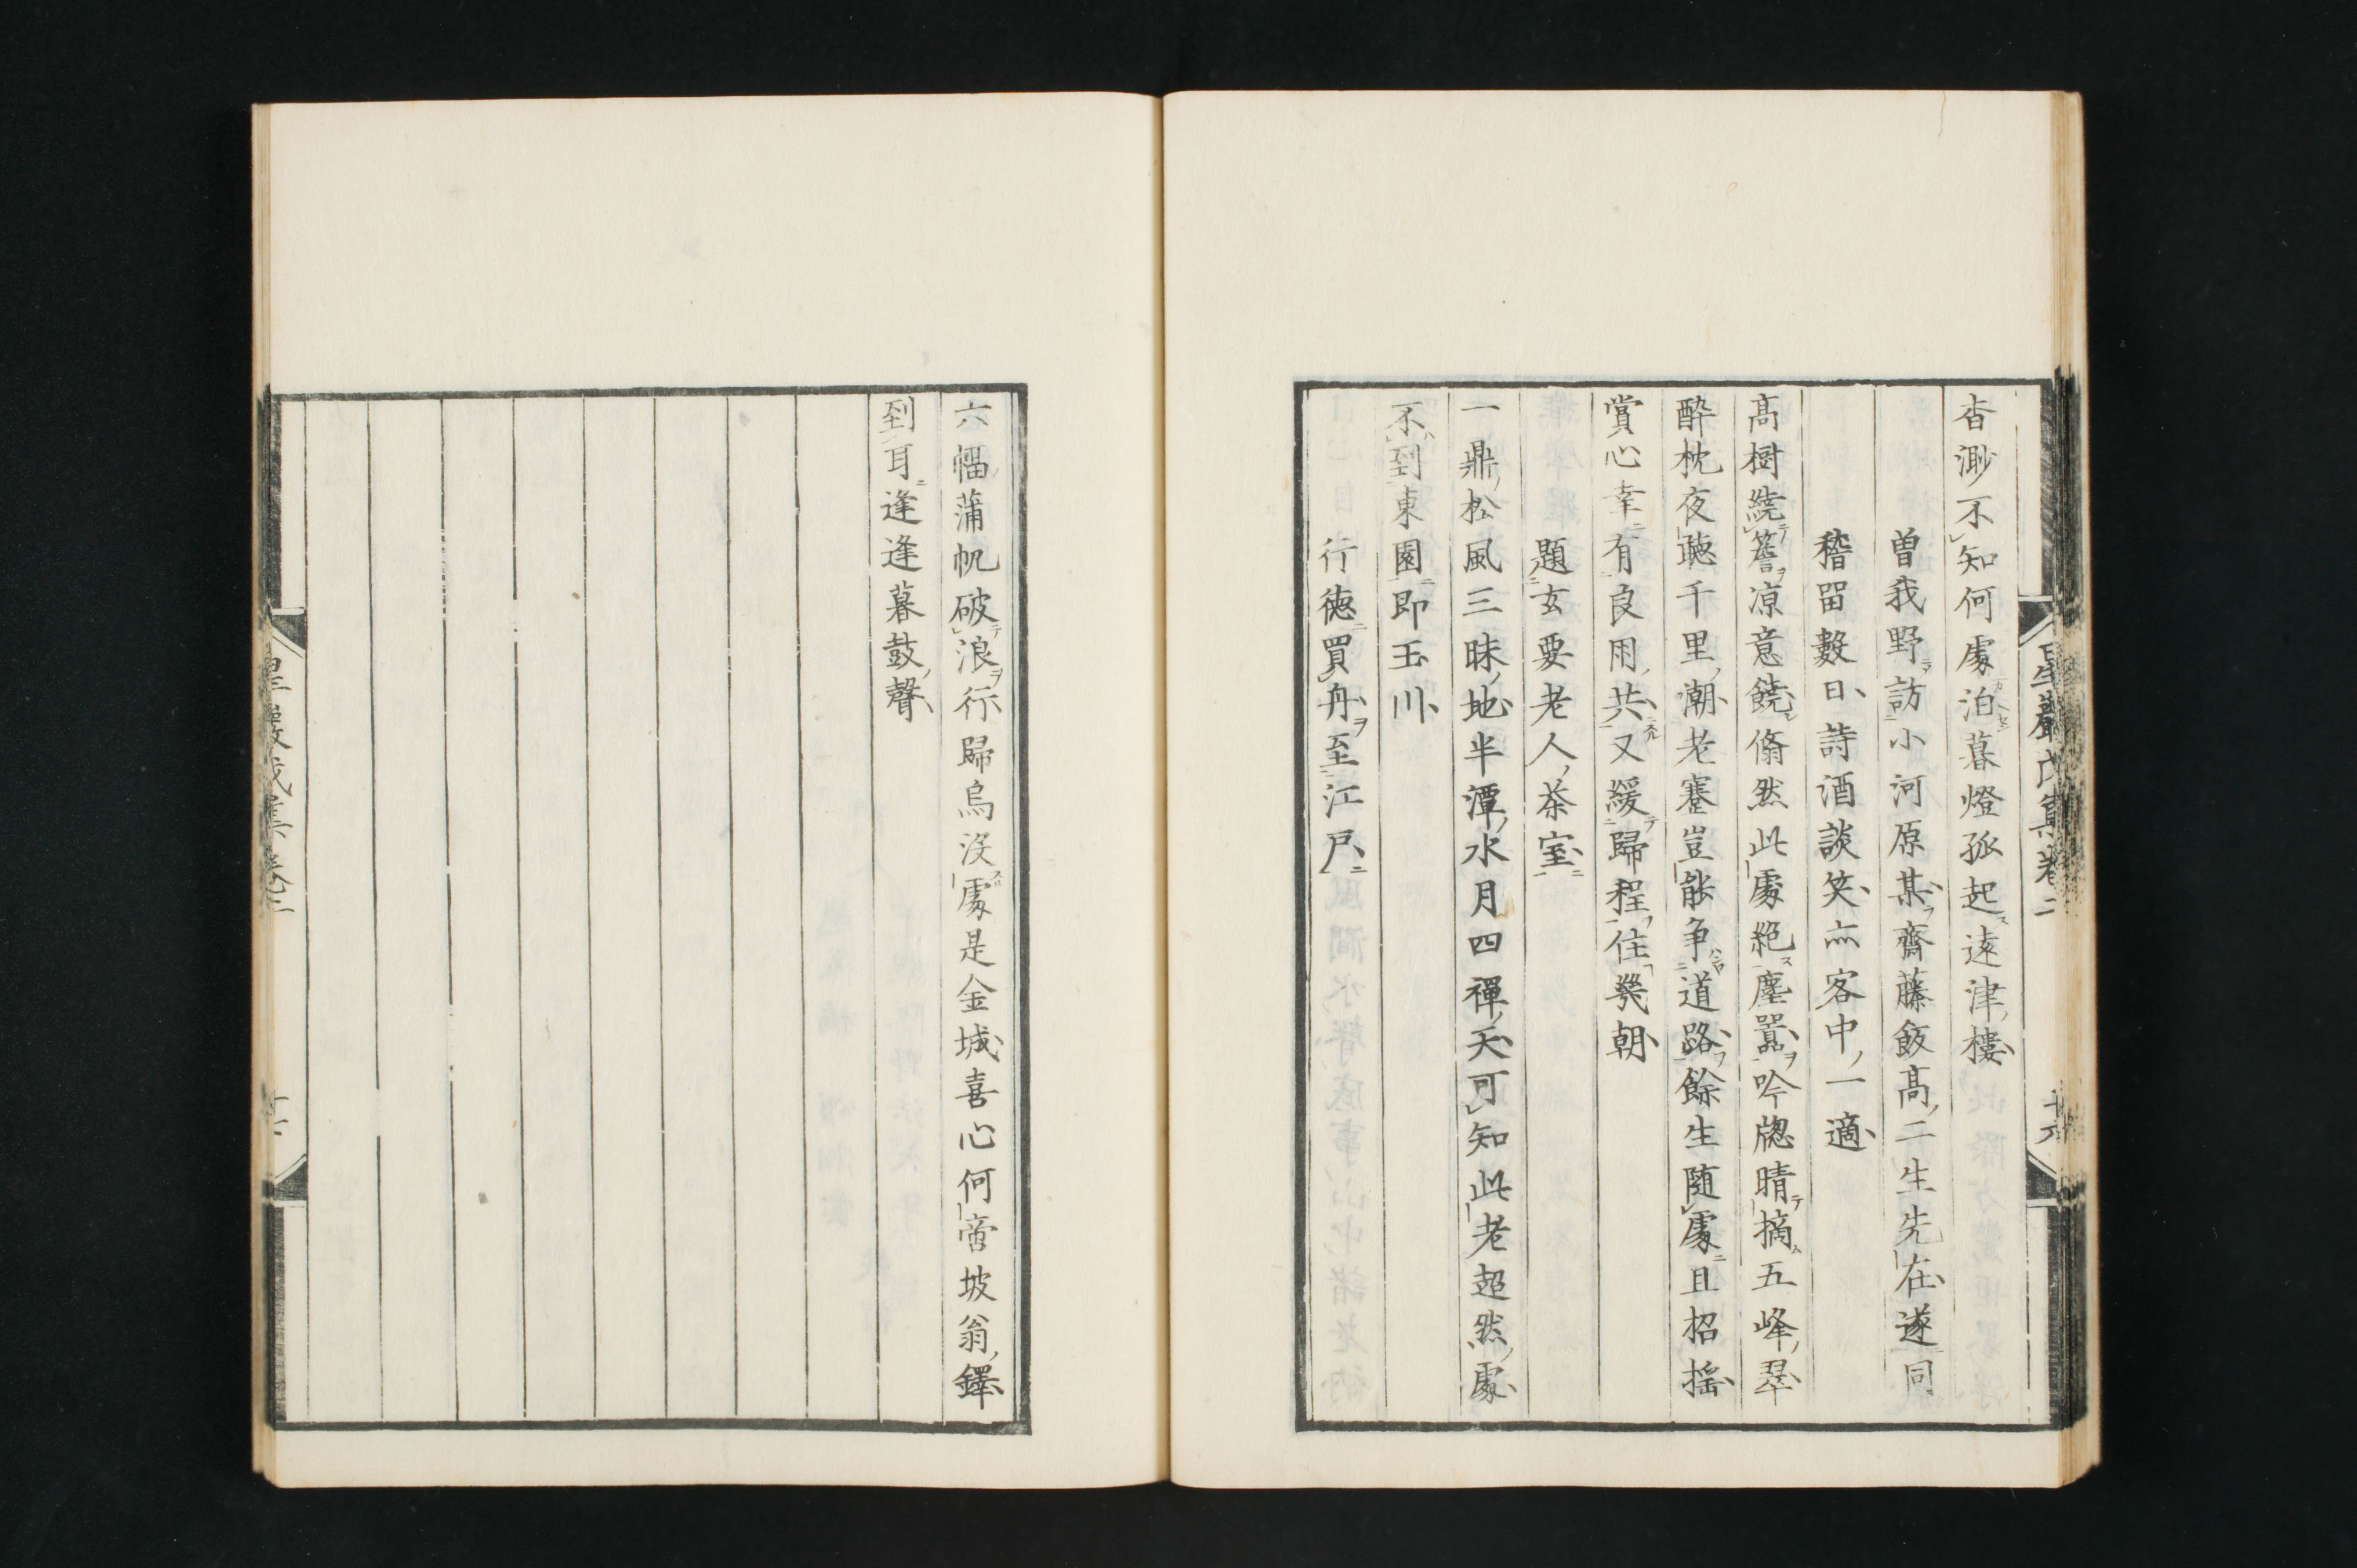 杳渺不知何處泊暮燈孤起遠津樓
曽我野訪小河原某齋藤飯髙二生先在遂同
稽留數日詩酒談笑亦客中一適
髙樹繞簷凉意饒翛然此處絶塵囂吟牕晴摘五峰翠
醉枕夜聽千里潮老蹇豈能争道路餘生随處且招揺
賞心幸有良朋共又緩歸程住幾朝
題玄要老人茶室
一鼎松風三昧地半潭水月四禪天可知此老超然處
不到東園即玉川
行徳買舟至江戸
六幅蒲帆破浪行歸烏没處是金城喜心何啻坡翁鐸
到耳逢逢暮鼓聲